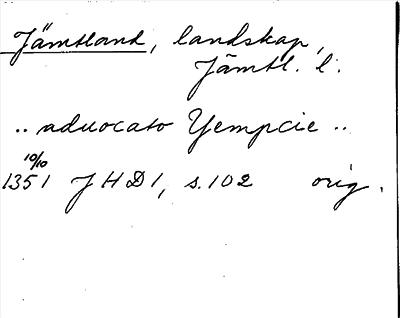 Jämtland, landskap,
Jämtl. l.
.. advocato Yempcie ..
10/10
1351 JHD1, s.102 orig.